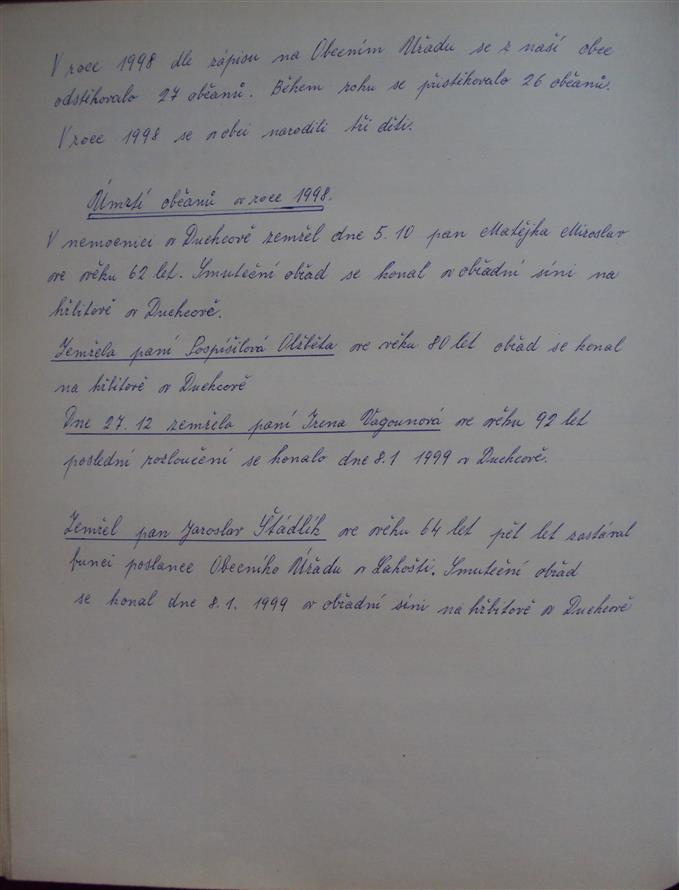 V roce 1998 dle zápisu na Obecním Úřadu se z naší obce
odstěhovalo 27 občanů. Během roku se přistěhovalo 26 občanů.
V roce 1998 se v obci narodili tři děti.
Úmrtí občanů v roce 1998.
V nemocnici v Duchcově zemřel dne 5.10 pan Matějka Miroslav
ve věku 62 let. Smuteční obřad se konal v obřadní síni na
hřbitově v Duchcově.
Zemřela paní Pospíšilová Olžběta ve věku 80 let obřad se konal
na hřbitově v Duchcově
Dne 27.12 zemřela paní Irena Vagounová ve věku 92 let
poslední rozloučení se konalo dne 8.1 1999 v Duchcově.
Zemřel pan Jaroslav Štádlík ve věku 64 let pět let zastával
funci poslance Obecního Úřadu v Lahošti. Smuteční obřad
se konal dne 8.1. 1999 v obřadní síni na hřbitově v Duchcově